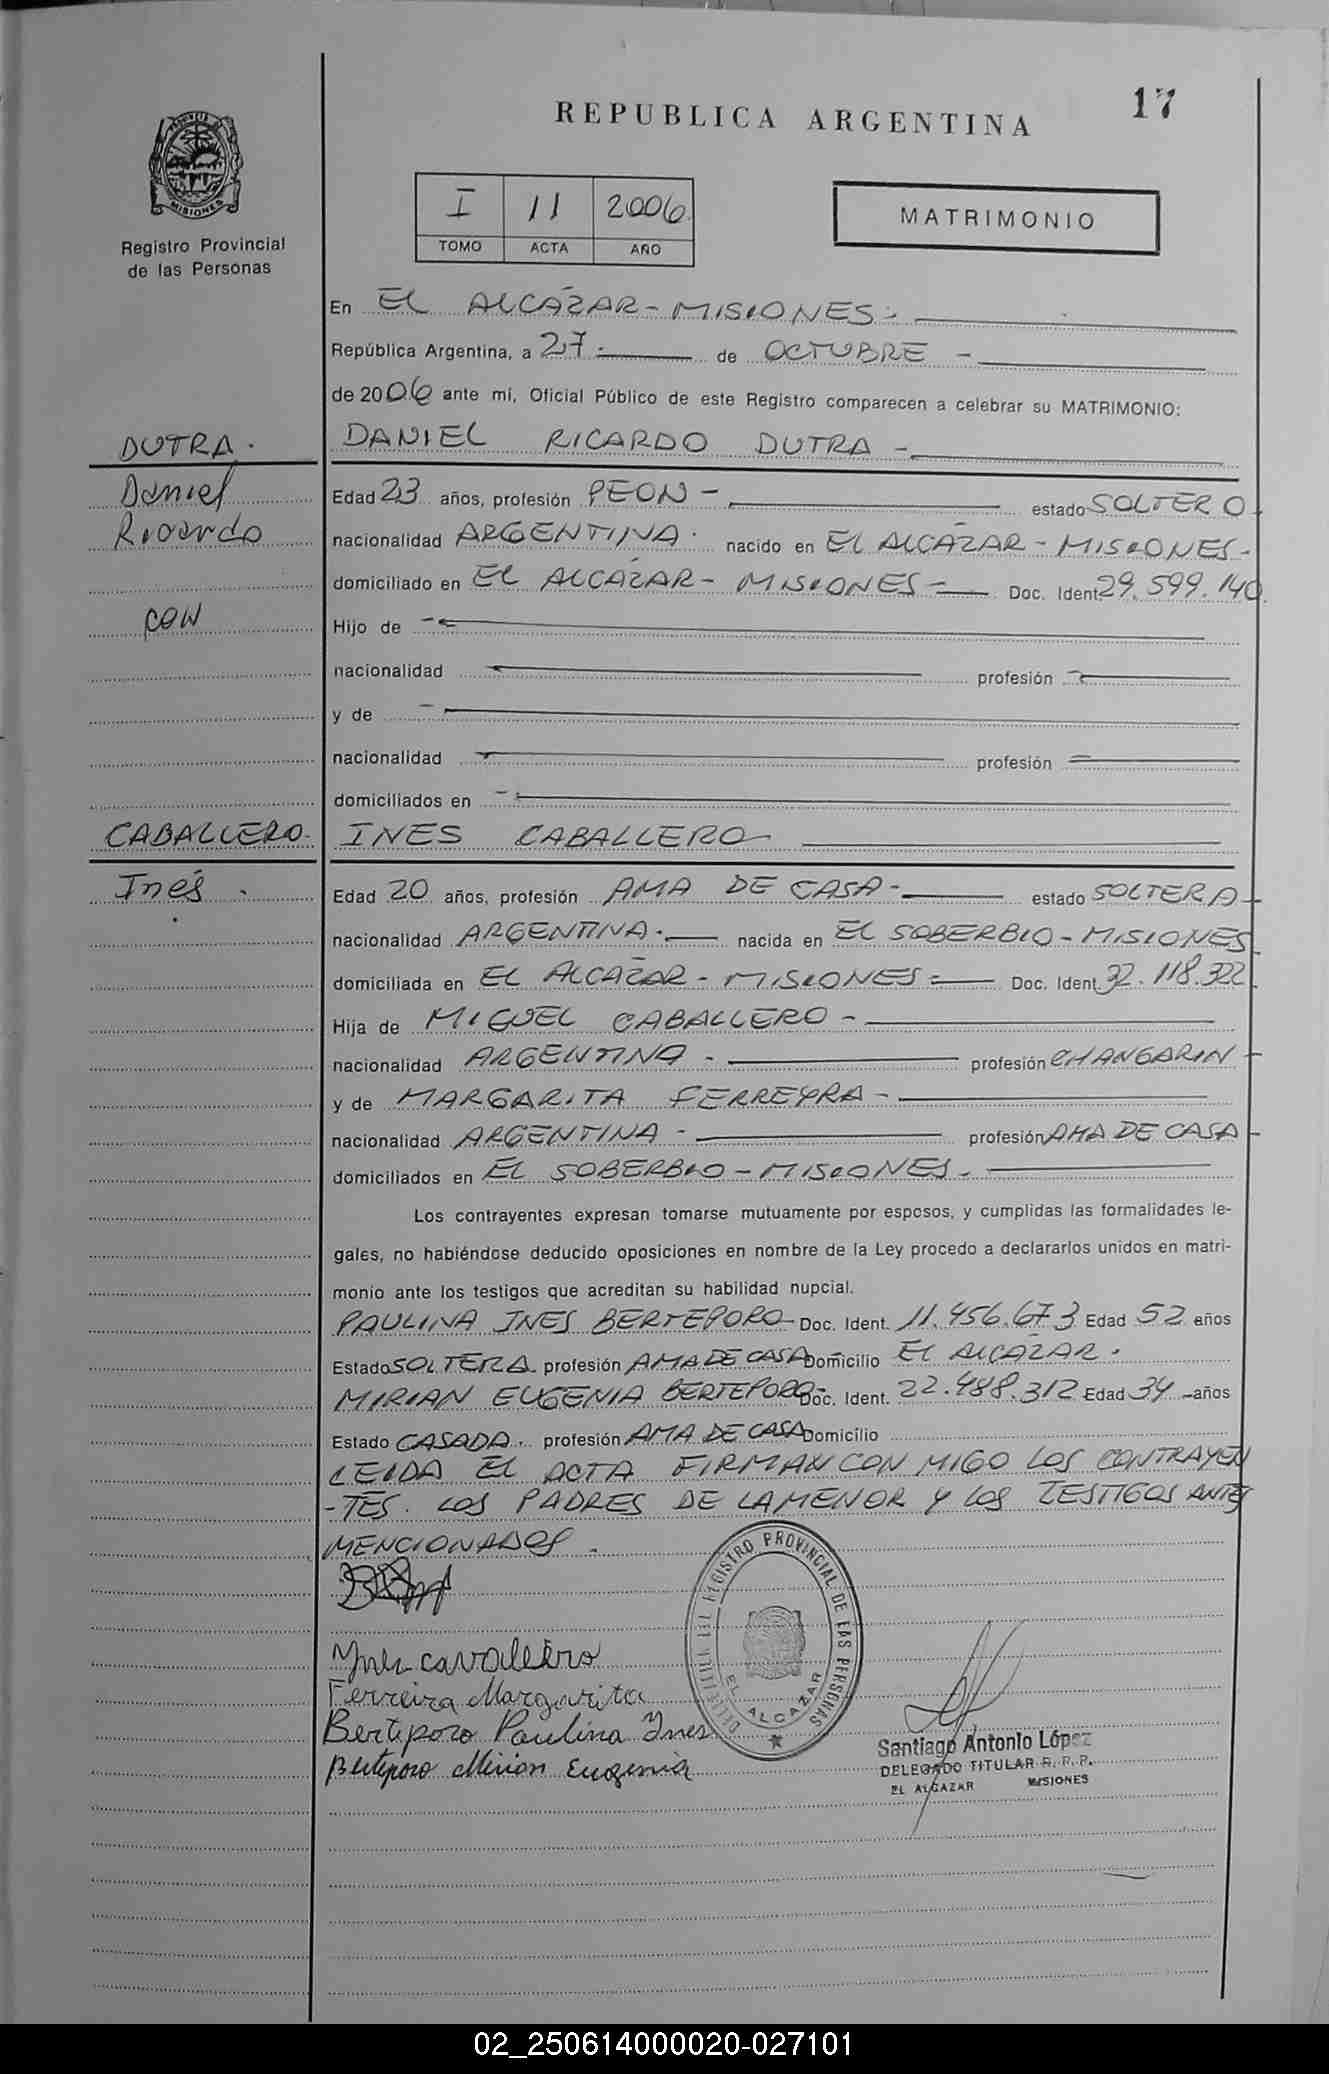 17
REPUBLICA ARGENTINA
MISIONES
Registro Provincial
de las Personas
I 11 2006
TOMO ACTA AÑO
MATRIMONIO
En EL ALCAZAR - MISIONES.
República Argentina, a 27 de OCTUBRE -
de 2006 ante mí, Oficial Público de este Registro comparecen a celebrar su MATRIMONIO:
DUTRA. DANIEL RICARDO DUTRA -
Daniel Edad 23 años, profesión PEON - estado SOLTERO
Ricardo nacionalidad ARGENTINA. nacido en EL ALCAZAR - MISIONES -
domiciliado en EL ALCAZAR - MISIONES - Doc. Ident 29.599.140
con Hijo de
nacionalidad profesión
y de
nacionalidad profesión
domiciliados en
CABALLERO. INES CABALLERO
Inés . Edad 20 años, profesión AMA DE CASA - estado SOLTERA
nacionalidad ARGENTINA. nacida en EL SOBERBIO - MISIONES
domiciliada en EL ALCAZAR - MISIONES Doc. Ident 32.118.322
Hija de MIGUEL CABALLERO -
nacionalidad ARGENTINA - profesión CHANGARIN
y de MARGARITA FERREYRA -
nacionalidad ARGENTINA - profesión AMA DE CASA
domiciliados en EL SOBERBIO - MISIONES.
Los contrayentes expresan tomarse mutuamente por esposos, y cumplidas las formalidades le-
gales, no habiéndose deducido oposiciones en nombre de la Ley procedo a declararlos unidos en matri-
monio ante los testigos que acreditan su habilidad nupcial.
PAULINA INES BERTEPORO - Doc. Ident. 11.456.673 Edad 52 años
Estado SOLTERA profesión AMA DE CASA Domicilio EL ALCAZAR.
MIRIAN EUGENIA BERTEPORO - Doc. Ident. 22.488.312 Edad 34 -años
Estado CASADA. profesión AMA DE CASA Domicilio
LEIDA EL ACTA FIRMAN CON MIGO LOS CONTRAYEN
-TES. LOS PADRES DE LA MENOR Y LOS TESTIGOS ANTES
MENCIONADOS.
DEL REGISTRO PROVINCIAL DE LAS PERSONAS
EL ALCAZAR
Ynez cavalleiro
Ferreira Margarita
Berteporo Paulina Ynes
Berteporo Mirian Eugenia
Santiago Antonio López
DELEGADO TITULAR R. P. P.
EL ALCAZAR MISIONES
02_250614000020-027101